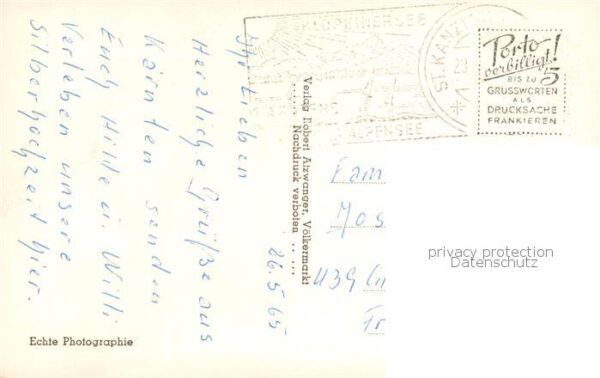 KLOPEINERSEE
ALPENSEE
ST. KANZI
Porto
verbilligt!
BIS ZU 5
GRUSSWORTEN
ALS
DRUCKSACHE
FRANKIEREN
26.5.65
Ihr Lieben
Herzliche Grüße aus
Kärnten senden
Euch Hilde u. Willi
Verleben unsere
Silberhochzeit hier.
Verlag Robert Aizwanger, Völkermarkt
Nachdruck verboten
Fam
Jos
439
Fr
privacy protection
Datenschutz
Echte Photographie